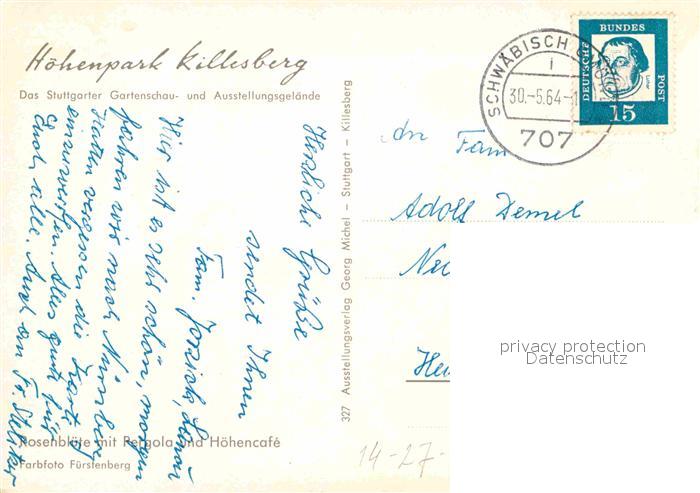 Höhenpark Killesberg
Das Stuttgarter Gartenschau- und Ausstellungsgelände
Herzliche Grüße
sendet Ihnen
Fam.
Hier ist es sehr schön, morgen
fahren wir nach Nürnberg
Hatten vergessen die Karte
einzuwerfen. Alles gute für
Euch alle. Auch an Fr.
Rosenblüte mit Pergola und Höhencafé
Farbfoto Fürstenberg
327 Ausstellungsverlag Georg Michel - Stuttgart - Killesberg
SCHWÄBISCH
30.-5.64-
707
DEUTSCHE BUNDES POST
Luther
15
An Fam
Adolf Demel
privacy protection
Datenschutz
14-27-